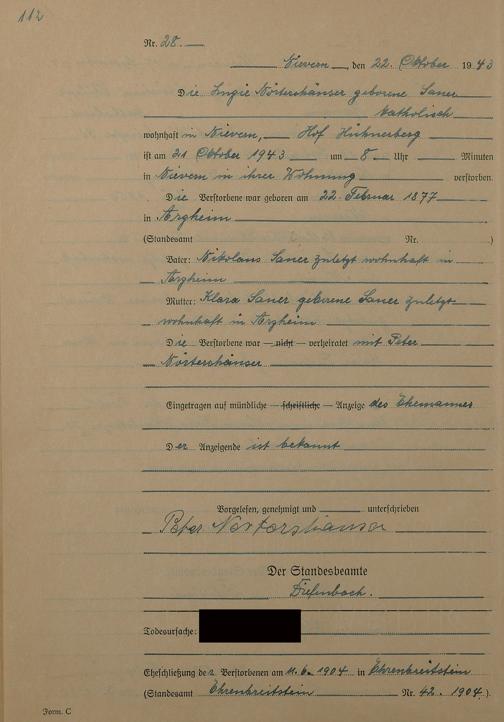 112
Nr. 28.
Nievern, den 22. Oktober 1943
Die Nörtershäuser geborene Saner
katholisch
wohnhaft in Nievern, Hof Hühnerberg
ist am 21 Oktober 1943 um 8 Uhr Minuten
in Nievern in ihrer Wohnung verstorben.
Die Verstorbene war geboren am 22. Februar 1877
in Arzheim
(Standesamt Nr. )
Vater: Nikolaus Saner zuletzt wohnhaft in
Arzheim
Mutter: Klara Saner geborene Saner zuletzt
wohnhaft in Arzheim
Die Verstorbene war — nicht — verheiratet mit Peter
Nörtershäuser
Eingetragen auf mündliche — schriftliche — Anzeige des Ehemannes
Der Anzeigende ist bekannt
Vorgelesen, genehmigt und unterschrieben
Peter Nörtershäuser
Der Standesbeamte
Diefenbach.
Todesursache:
Eheschließung der Verstorbenen am 11.6.1904 in Ehrenbreitstein
(Standesamt Ehrenbreitstein Nr. 42. 1904).
Form. C